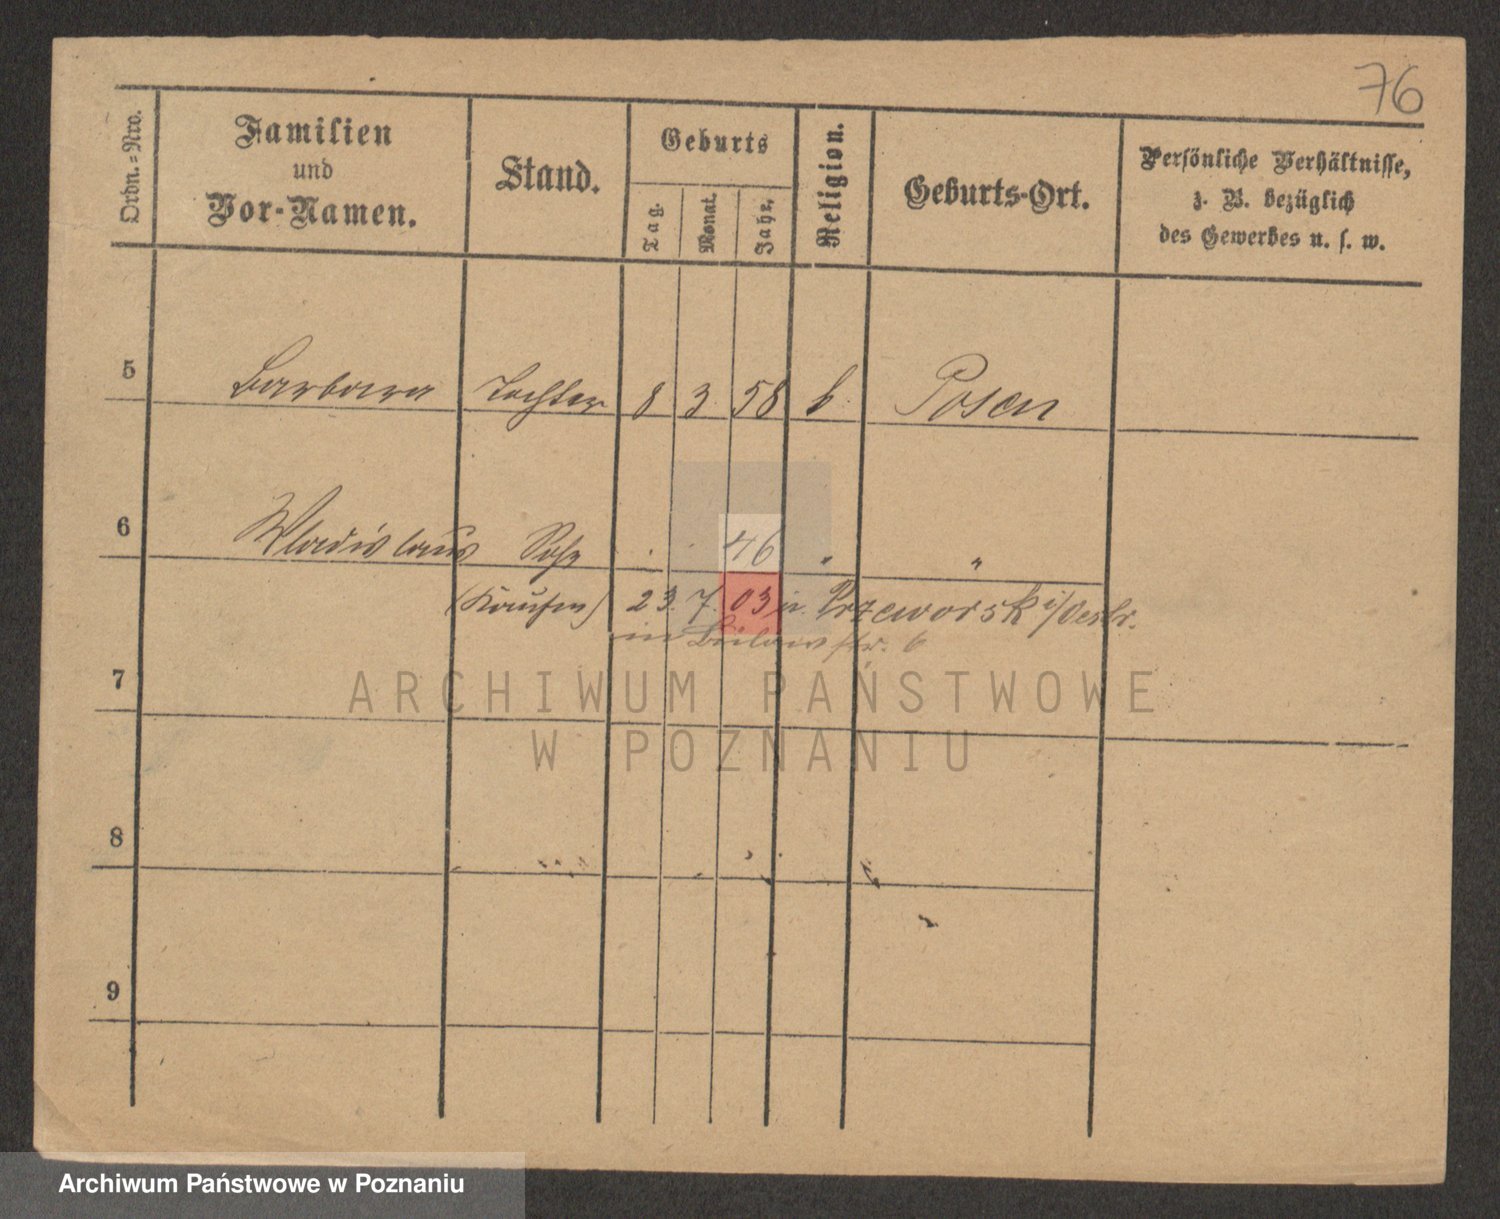 76
Ordn.=Nro.
Familien
und
Vor-Namen.
Stand.
Geburts
Tag.
Monat.
Jahr.
Religion.
Geburts-Ort.
Persönliche Verhältnisse,
z. B. bezüglich
des Gewerbes u. s. w.
5 Barbara Tochter 8 3 58 k. Posen
6 Wladislaus Sohn . . 46 " "
23. 7. 03 n. Przeworsk i/Oestr.
7
8
9
ARCHIWUM PAŃSTWOWE
W POZNANIU
Archiwum Państwowe w Poznaniu